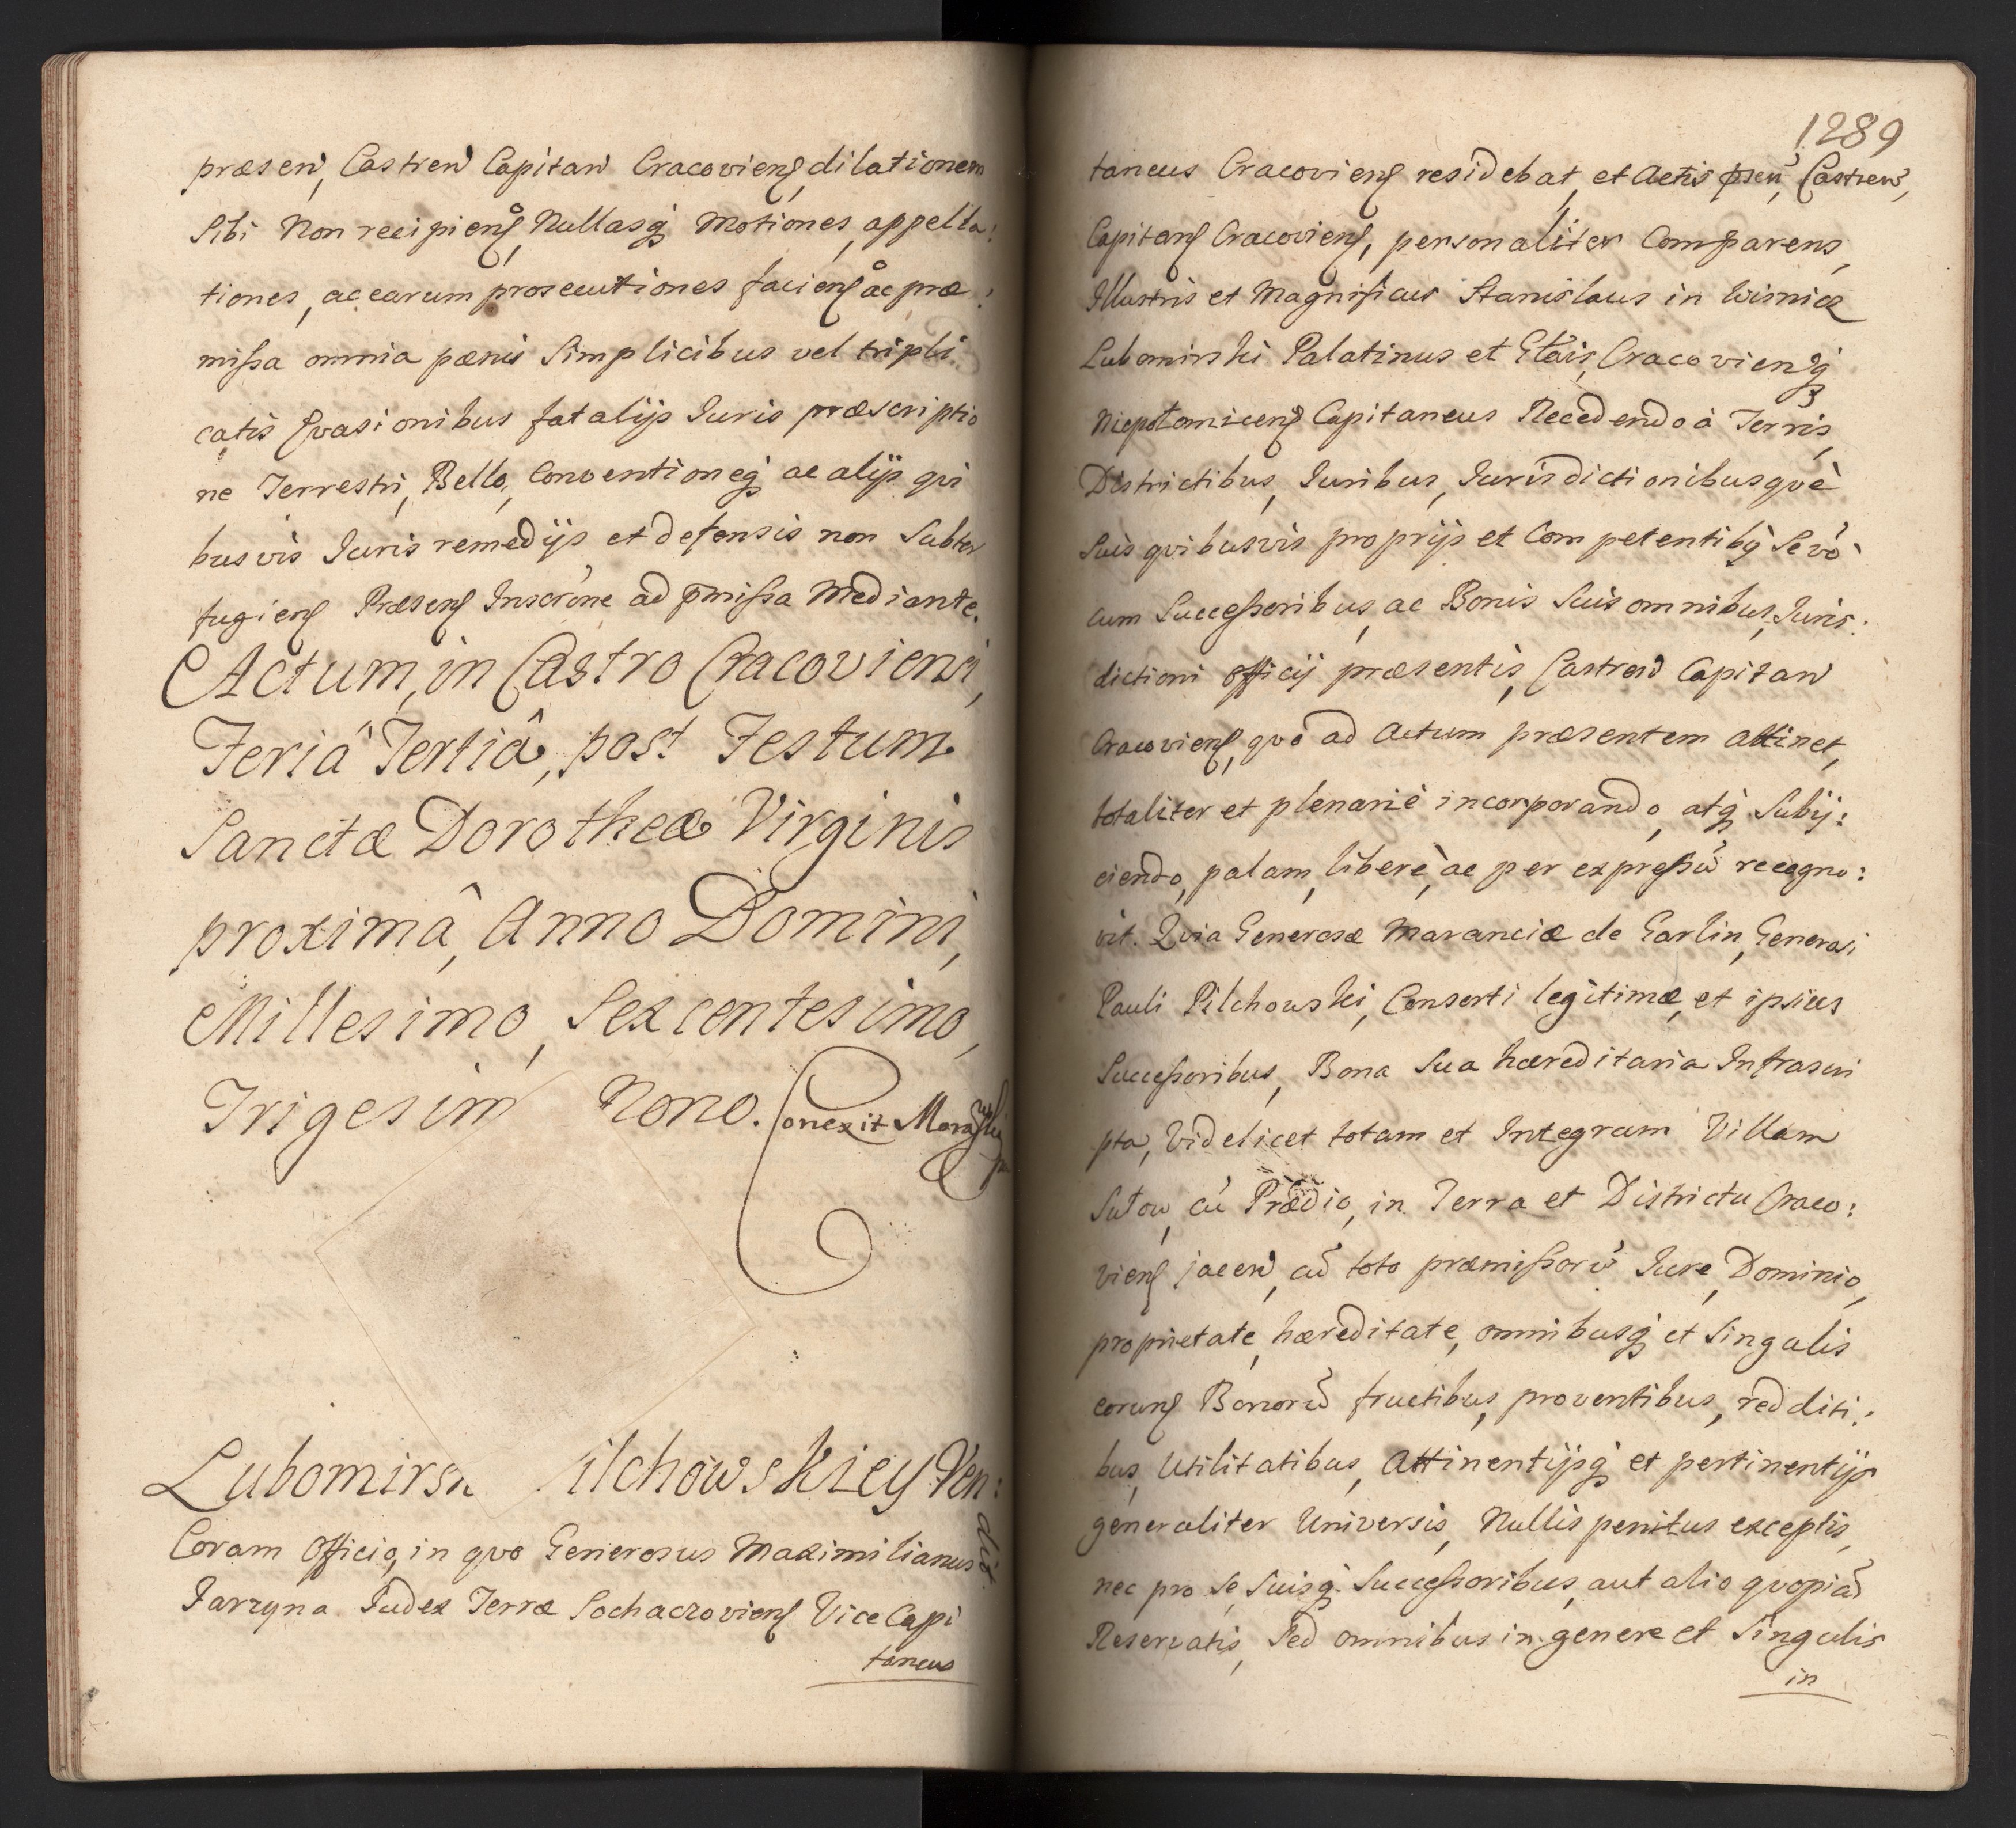 præsen, Castren Capitan Cracoviens, dilationem
Sibi Non recipiens, Nullasq motiones, appella:
tiones, ac earum prosecutiones faciens ac præ:
missa omnia pænis Simplicibus vel tripli:
catis Evasionibus fatalijs Iuris præscriptio
ne Terrestri, Bello, Conventioneq ac alijs qui
busvis Iuris remedijs et defensis non Subter
fugiens Præsens Inscrone ad pmissa Mediante.
Actum, in Castro Cracoviensi,
Feriâ Tertiâ, post Festum
Sanctæ Dorotheæ Virginis
proximâ, Anno Domini,
Millesimo, Sexcentesimo,
Trigesim Nono. Conexit
Lubomirsk ilchowskiey Ven:
dit
Coram Officio, in quo Generosus Maximilianus
Jarzyna Judex Terræ Sochaczoviens Vice Capi
taneus
1289
taneus Cracoviens residebat, et Actis psen, Castren,
Capitans Cracoviens, personaliter Comparens,
Illustris et Magnificus Stanislaus in Wisnicz
Lubomirski Palatinus et Gñalis, Cracovienq
Niepołomicens Capitaneus Recedendo à Terris,
Districtibus, Iuribus, Iurisdictionibusquè
Suis quibusvis proprijs et Competentibq Se vò
cum Successoribus, ac Bonis Suis omnibus, Iuris:
dictioni officij præsentis, Castren Capitan
Cracoviens, quò ad Actum præsentem attinet,
totaliter et plenariè incorporando, atq Subij:
ciendo, palam, liberè, ac per expressũ recogno:
vit. Quia Generosæ Maranciæ de Garlin, Generosi
Pauli Pilchowski, Consorti legitimæ, et ipsius
Successoribus, Bona Sua hæreditaria Infrascri
pta, Videlicet totam et Integram Villam
Sułow, cũ Prædio, in Terra et Districtu Craco:
viens jacen, cũ toto præmissorũ Iure, Dominio,
proprietate, hæreditate, omnibusq et Singulis
eorums Bonorũ fructibus, proventibus, redditi:
bus, Utilitatibus, Attinentijsq et pertinentijs
generaliter Universis, Nullis penitus exceptis,
nec pro Se, Suisq Successoribus, aut alio quopiã
Reservatis, Sed omnibus in genere et Singulis
in